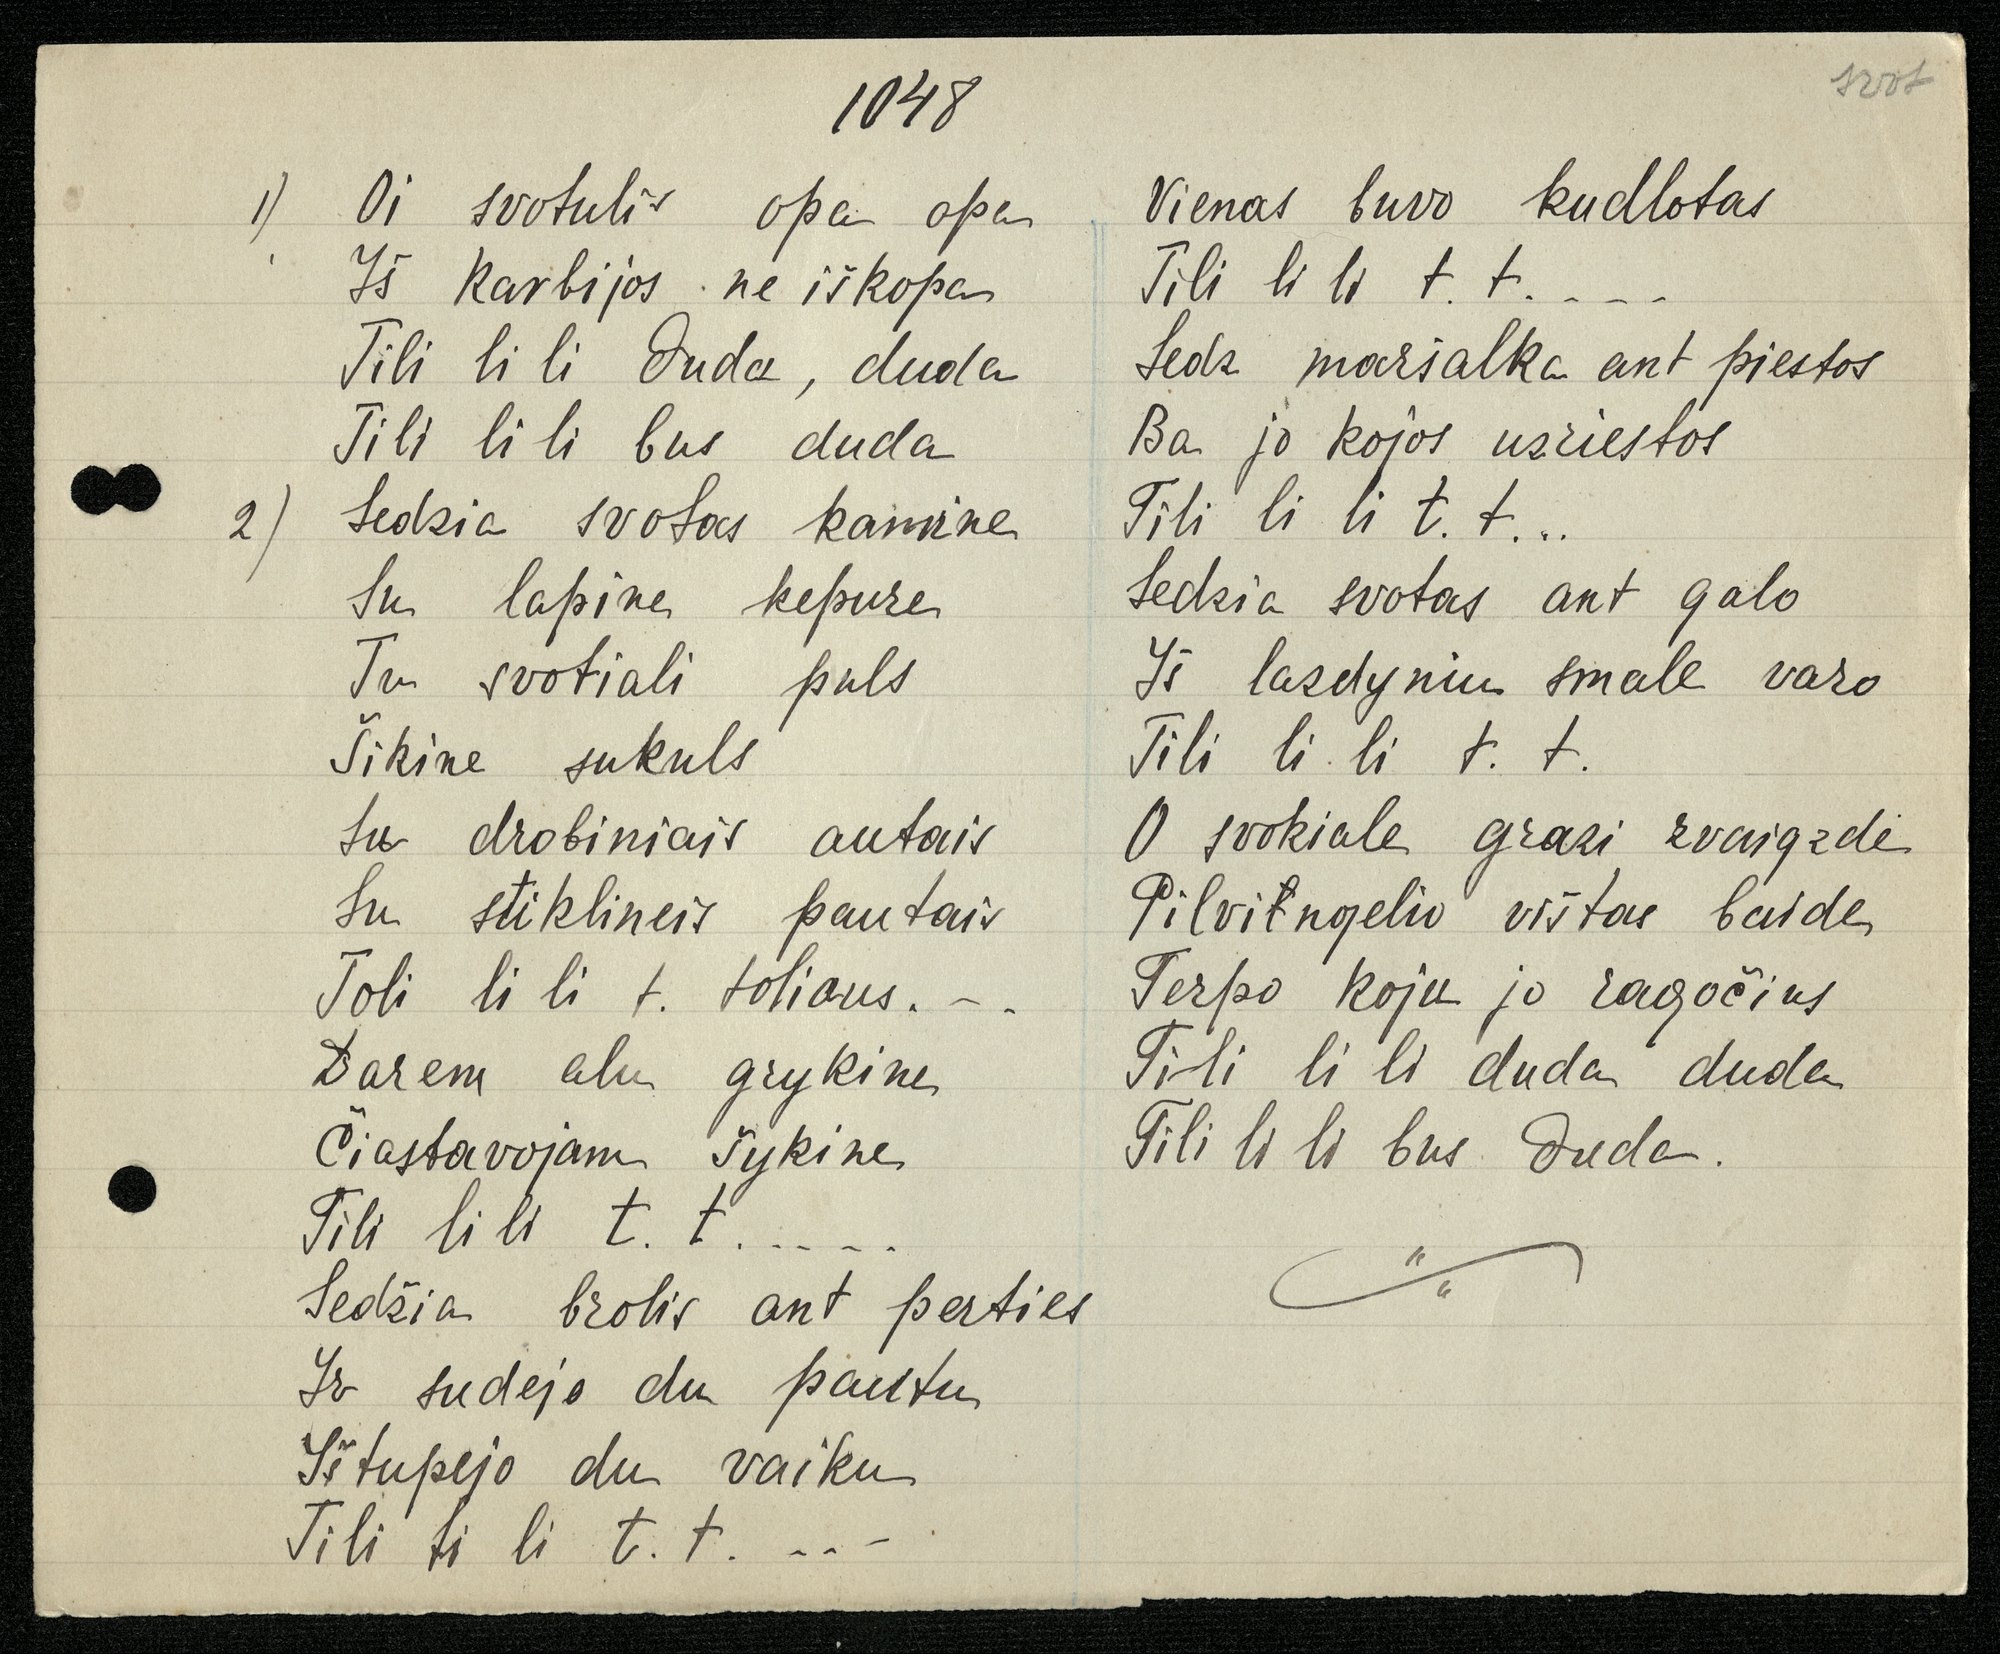 1048
svot
1) Oi svotulis opa opa
Iš Karbijos ne iškopa
Tili li li duda, duda
Tili li li bus duda
2) Sedzia svotas kamine
Su lapine kepure
Tu svotiali puls
Šikine sukuls
Su drobiniais autais
Su stiklineis pautais
Toli li li t. toliaus. - -
Darem alu grykine
Čiastavojam šykine
Tili li li t. t. - - - -
Sedžia brolis ant perties
Ir sudejo du pautu
Ištupejo du vaiku
Tili li li t. t. - - -
Vienas buvo kudlotas
Tili li li t. t. - - -
Sedz maršalka ant piestos
Ba jo kojos uzriestos
Tili li li t. t. ..
Sedzia svotas ant galo
Iš lazdyniu smale varo
Tili li li t. t.
O svokiale grazi zvaigzdė
Pilvitngeliu vištas baide
Terpo koju jo ragočius
Tili li li duda duda
Tili li li bus duda.